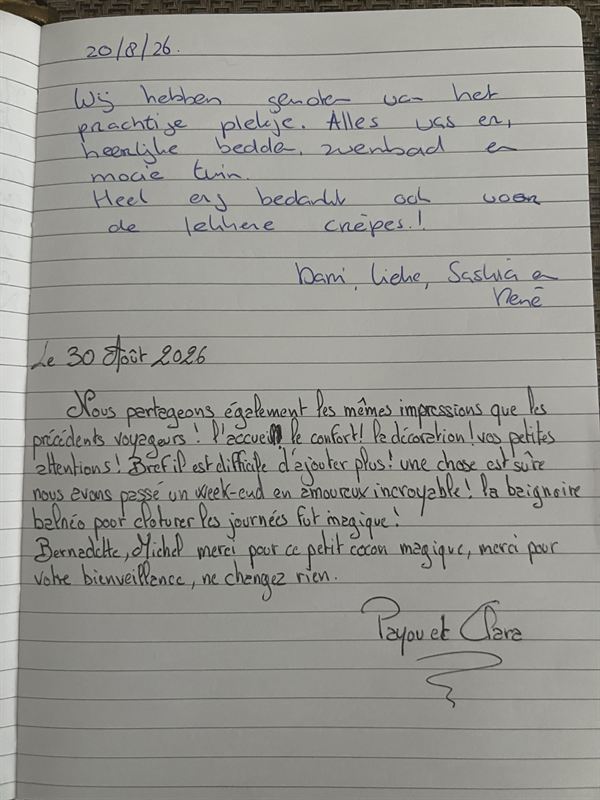 20/8/26.
Wij hebben genoten van het
prachtige plekje. Alles was er,
heerlijke bedden, zwembad en
mooie tuin.
Heel erg bedankt ook voor
de lekkere crêpes.!
Dani, Lieke, Saskia en
René
Le 30 Août 2026
Nous partageons également les mêmes impressions que les
précédents voyageurs ! l'accueil, le confort ! la décoration ! vos petites
attentions ! Bref il est difficile d'ajouter plus ! une chose est sûre
nous avons passé un week-end en amoureux incroyable ! la baignoire
balnéo pour cloturer les journées fut magique !
Bernadette, Michel merci pour ce petit cocon magique, merci pour
votre bienveillance, ne changez rien.
Payou et Clara